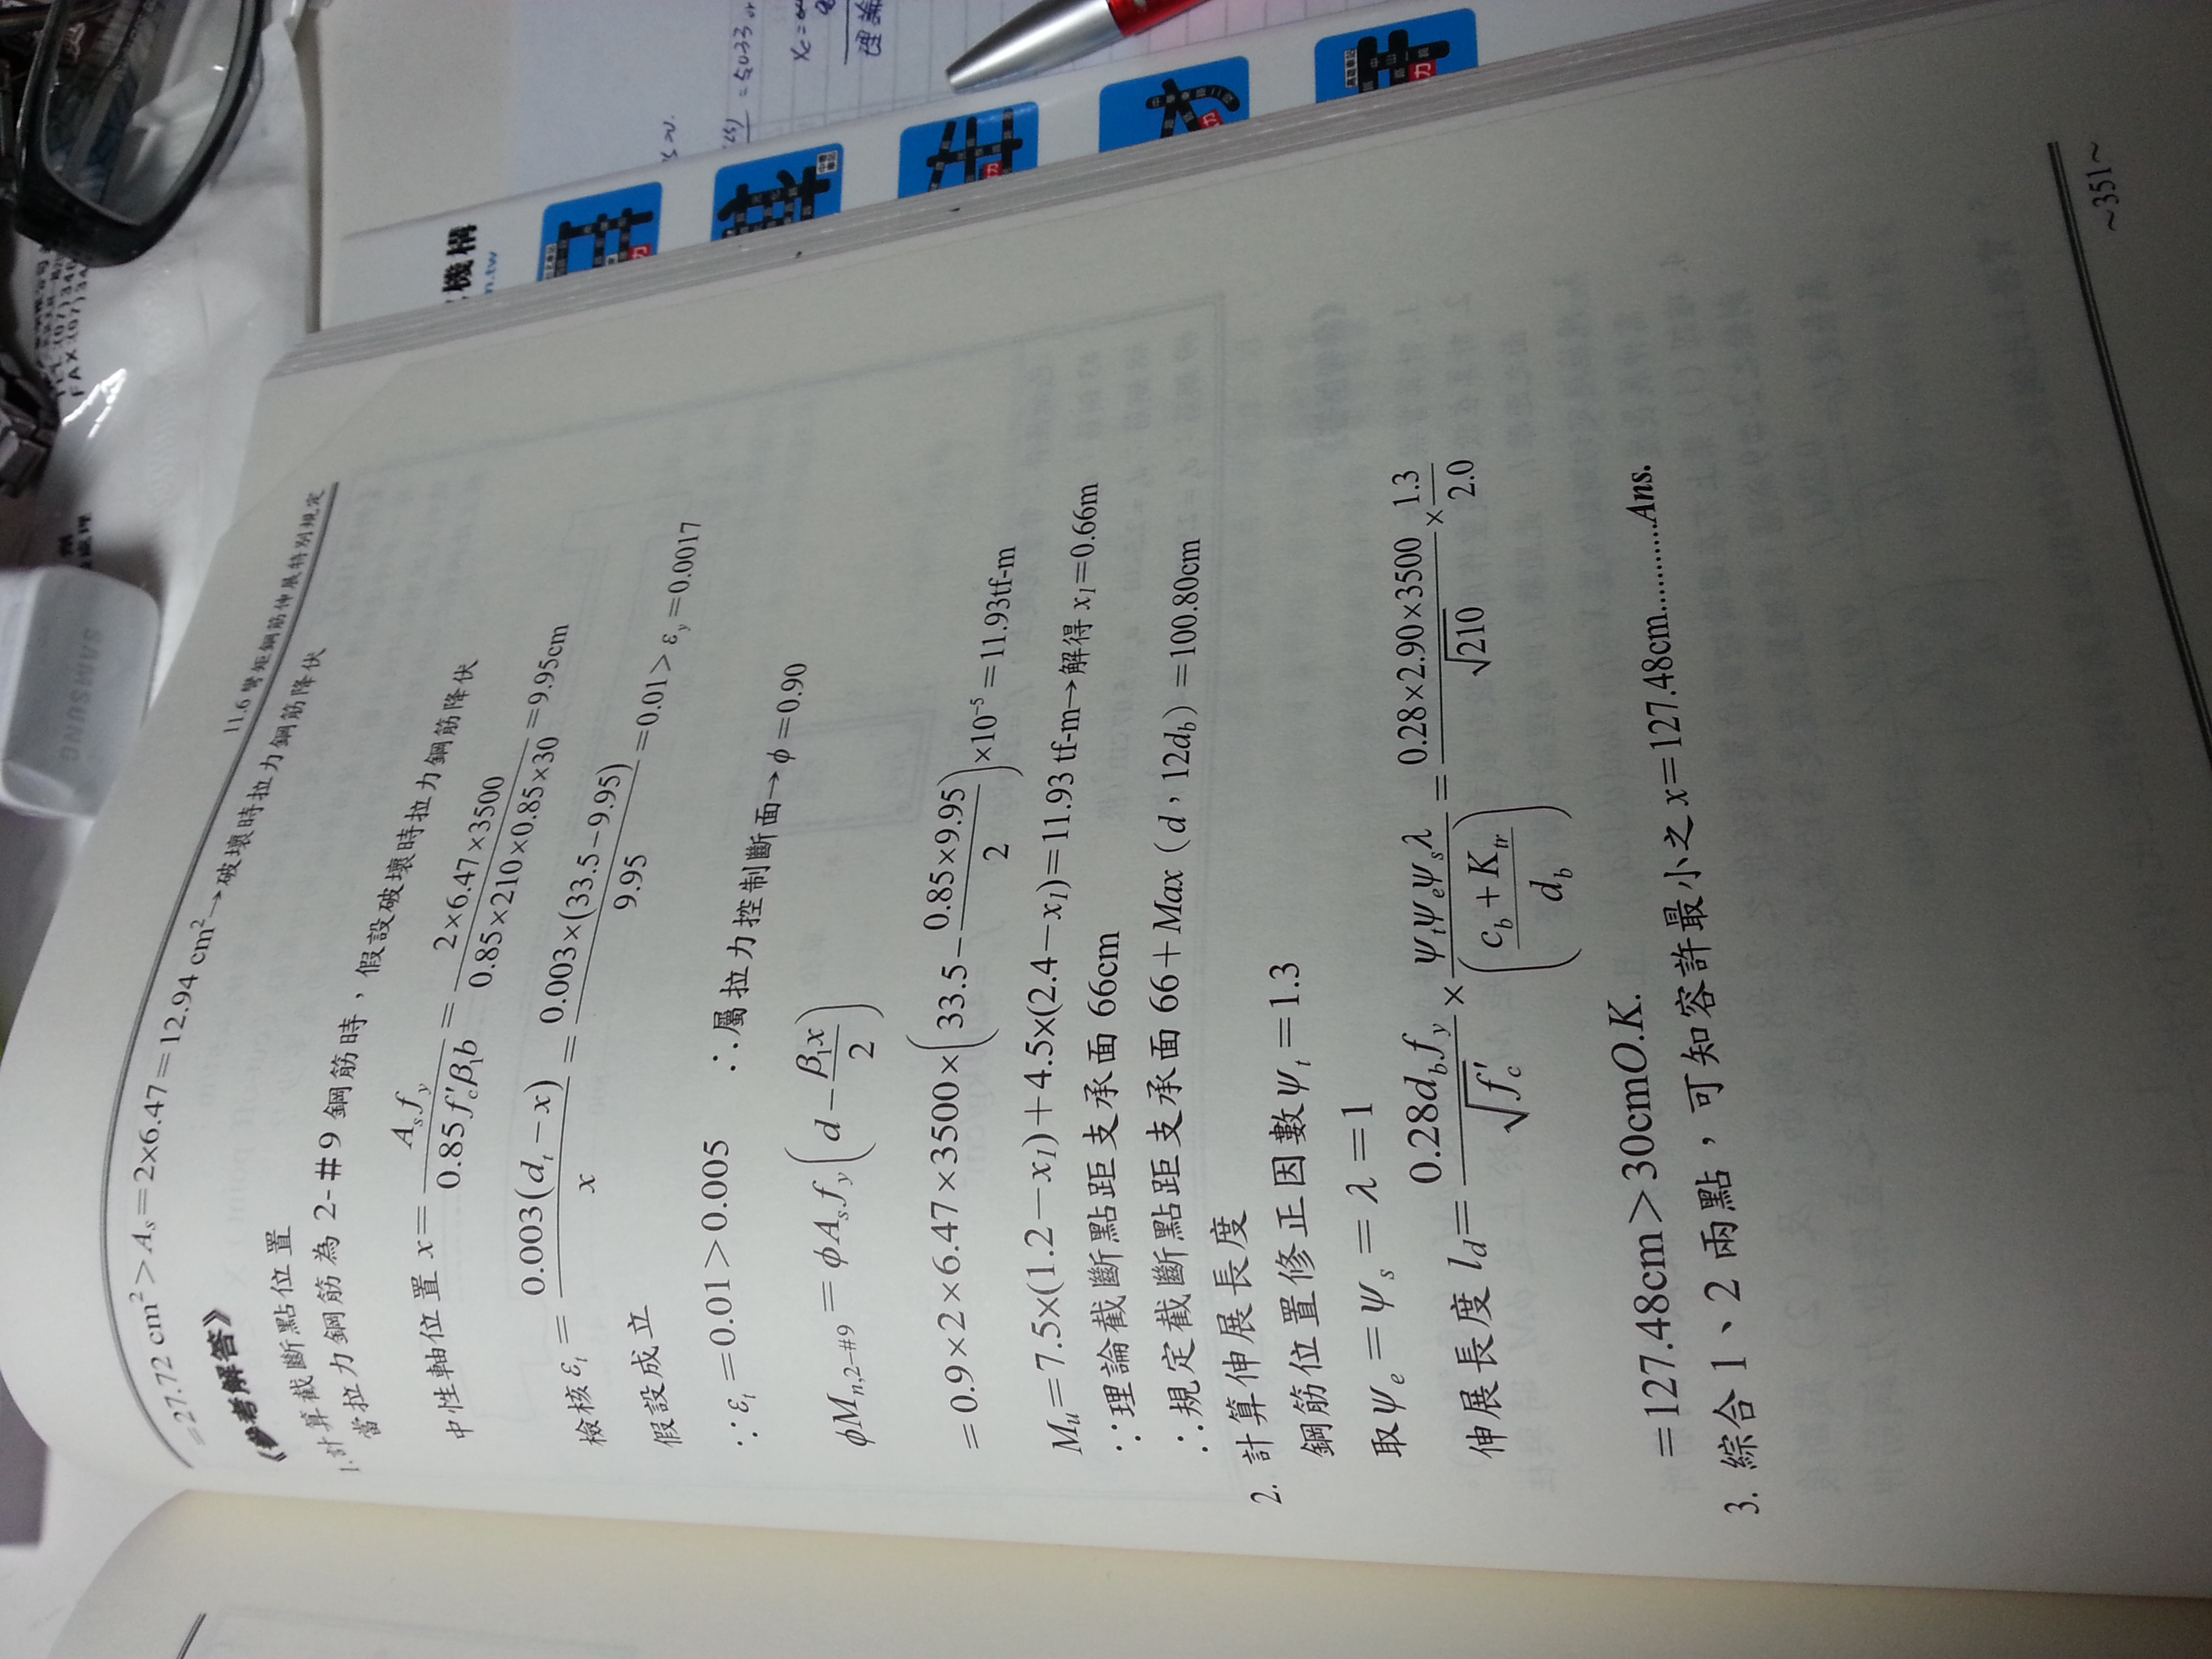 11.6 彎矩鋼筋伸展特別規定
=27.72 cm²>Aₛ=2×6.47=12.94 cm²→破壞時拉力鋼筋降伏
《參考解答》
1.計算截斷點位置
當拉力鋼筋為 2-#9 鋼筋時，假設破壞時拉力鋼筋降伏
中性軸位置 x= Aₛf_y / 0.85f'_cβ₁b = 2×6.47×3500 / 0.85×210×0.85×30 =9.95cm
檢核 ε_t = 0.003(d_t−x) / x = 0.003×(33.5−9.95) / 9.95 =0.01> ε_y=0.0017
假設成立
∵ε_t=0.01>0.005 ∴屬拉力控制斷面→ϕ=0.90
ϕM_{n,2-#9}=ϕAₛf_y(d−β₁x/2)
=0.9×2×6.47×3500×(33.5−0.85×9.95/2)×10⁻⁵=11.93tf-m
M_u=7.5×(1.2−x₁)+4.5×(2.4−x₁)=11.93 tf-m→解得 x₁=0.66m
∵理論截斷點距支承面 66cm
∴規定截斷點距支承面 66+Max（d，12d_b）=100.80cm
2. 計算伸展長度
鋼筋位置修正因數ψ_t=1.3
取ψ_e=ψ_s=λ=1
伸展長度 l_d= 0.28d_bf_y / √f'_c × ψ_tψ_eψ_sλ / ((c_b+K_tr)/d_b) = 0.28×2.90×3500 / √210 × 1.3 / 2.0
=127.48cm>30cmO.K.
3. 綜合 1、2 兩點，可知容許最小之 x=127.48cm...........Ans.
~351~
SAMSUNG
機構
n.tw
理論